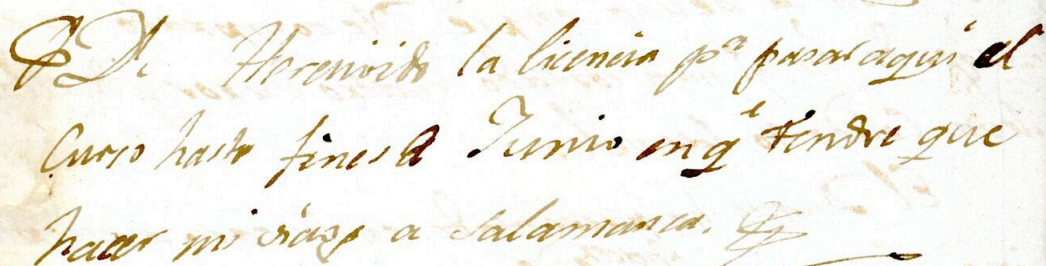 P D. He recivido la licencia pª pasar aqui el
Curso hasta fines de Junio en qe tendre que
hacer mi viage a Salamanca.